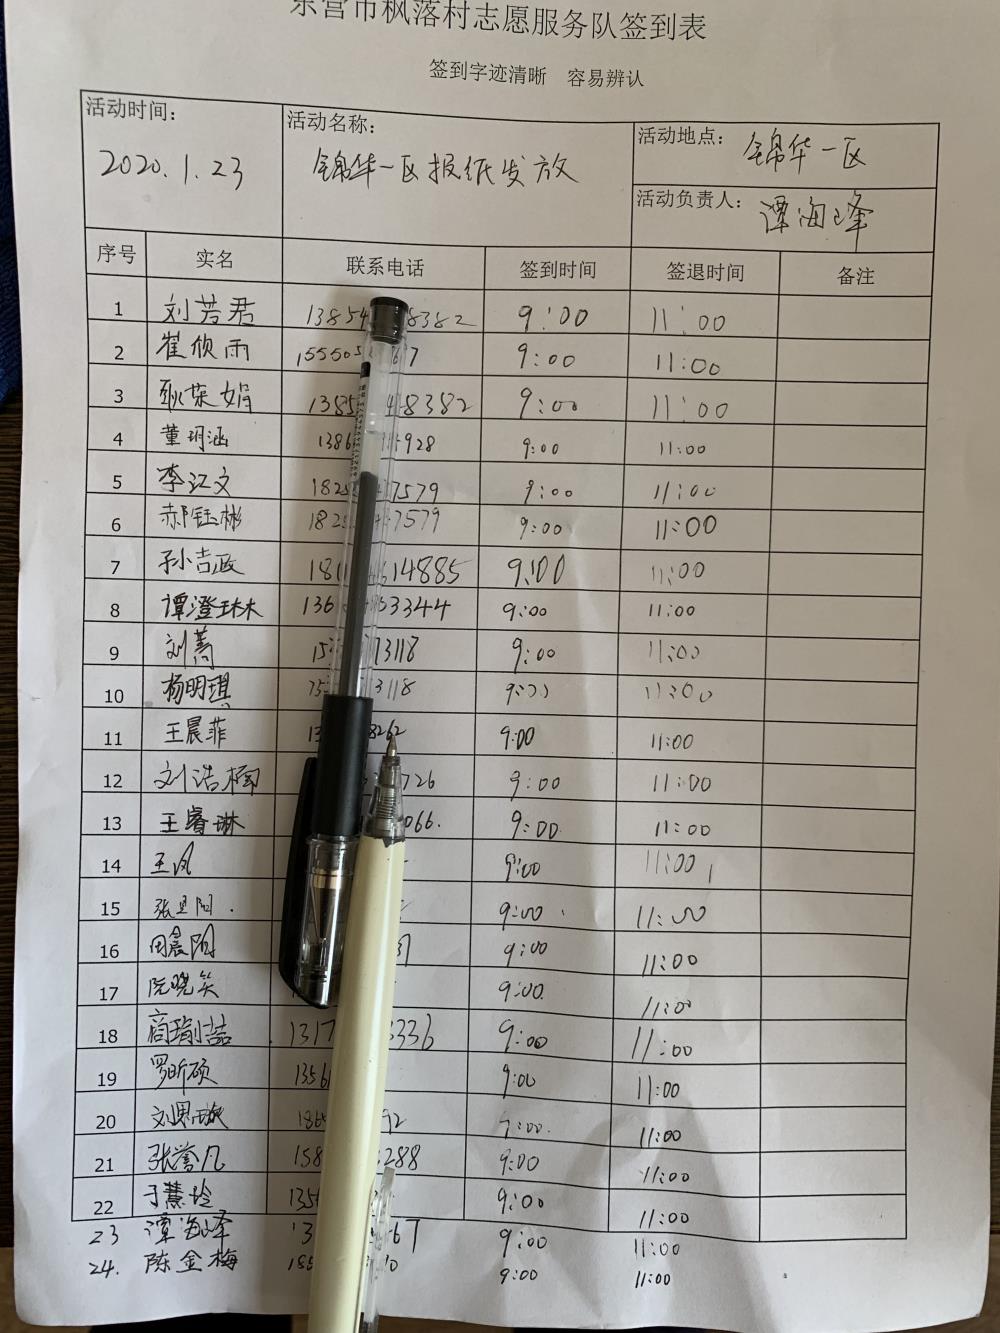 东营市枫落村志愿服务队签到表
签到字迹清晰 容易辨认
活动时间: 2020.1.23
活动名称: 锦华一区报纸发放
活动地点: 锦华一区
活动负责人: 谭海峰
序号 实名 联系电话 签到时间 签退时间 备注
1 刘芳君 13854 8382 9:00 11:00
2 崔侦雨 155505 7 9:00 11:00
3 耿荣娟 1385 48382 9:00 11:00
4 董玥涵 1386 928 9:00 11:00
5 李江文 182 7579 9:00 11:00
6 郝钰彬 182 7579 9:00 11:00
7 孙吉政 181 14885 9:00 11:00
8 谭澄琳 136 3344 9:00 11:00
9 刘菁 15 73118 9:00 11:00
10 杨明琪 15 3118 9:00 11:00
11 王晨菲 13 8262 9:00 11:00
12 刘浩楠 726 9:00 11:00
13 王睿琳 066. 9:00 11:00
14 王凤 9:00 11:00
15 9:00 11:00
16 田晨阳 9:00 11:00
17 阮晓笑 9:00 11:00
18 商瑞喆 1317 3336 9:00 11:00
19 罗昕硕 1356 9:00 11:00
20 186 92 9:00 11:00
21 张誉凡 158 288 9:00 11:00
22 于慧玲 135 9:00 11:00
23 谭海峰 13 67 9:00 11:00
24. 陈金梅 185 0 9:00 11:00